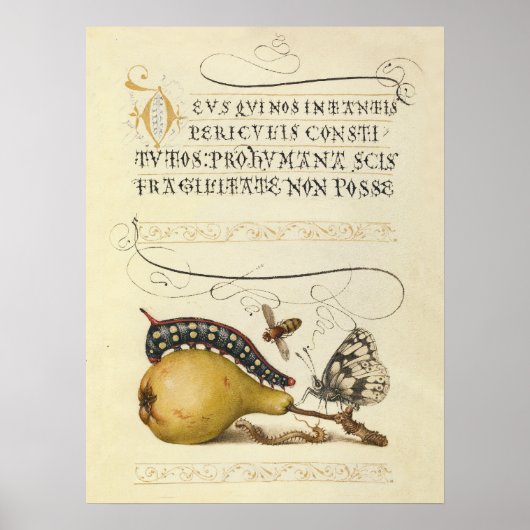 DEVS QVI NOS IN TANTIS
PERICVLIS CONSTI
TVTOS: PRO HVMANA SCIS
FRAGILITATE NON POSSE